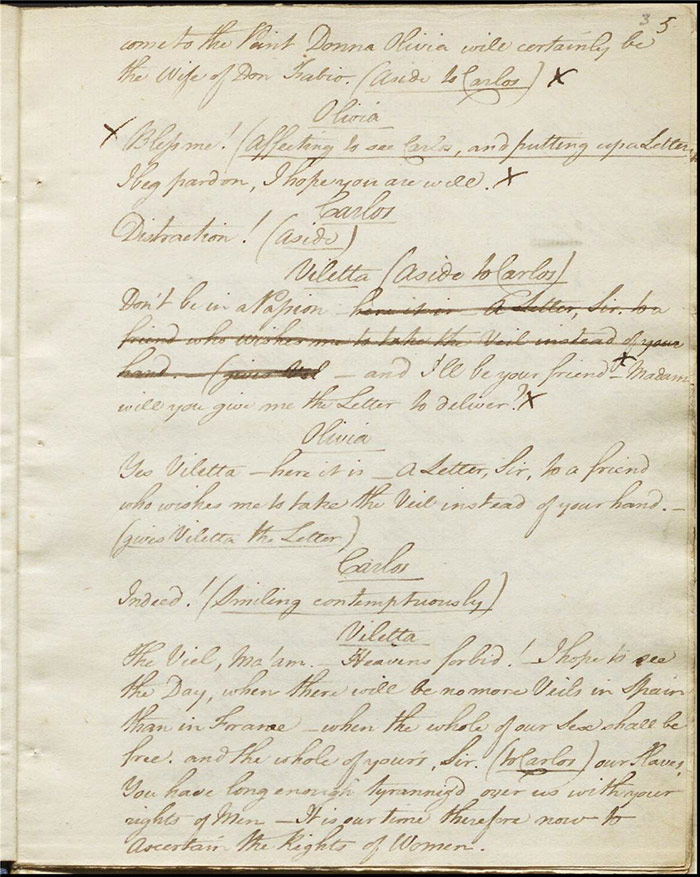 3 5
come to the Point Donna Olivia will certainly be
the Wife of Don Fabio. (Aside to Carlos) x
Olivia
x Bless me! (Affecting to see Carlos, and putting up a Letter)
I beg pardon, I hope you are well. x
Carlos
Distraction! (Aside)
Viletta (Aside to Carlos)
Don't be in a Passion – here it is – A Letter, Sir, to a
friend who wishes me to take the Veil instead of your
hand. – (gives Vil – and I'll be your friend – x Madam
will you give me the Letter to deliver? x
Olivia
Yes Viletta – here it is – A Letter, Sir, to a friend
who wishes me to take the Veil instead of your hand. –
(gives Viletta the Letter)
Carlos
Indeed! (Smiling contemptuously)
Viletta
The Viel, Ma'am. – Heavens forbid! – I hope to see
the Day, when there will be no more Veils in Spain
than in France – when the whole of our Sex shall be
free. and the whole of yours, Sir. (to Carlos) our Slaves.
You have long enough tyranniz'd over us with your
rights of Men – It is our time therefore now to
Ascertain the Rights of Women.